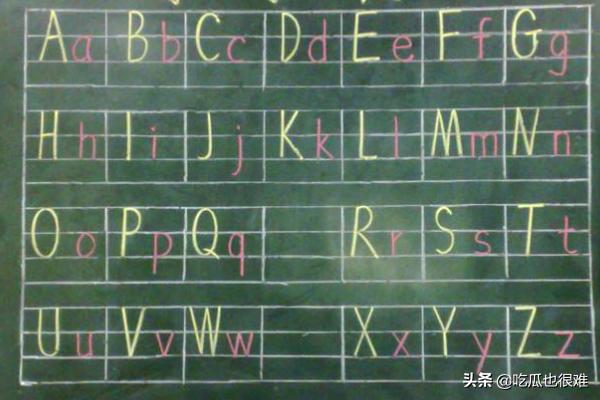 Aa Bb Cc Dd Ee Ff Gg
Hh Ii Jj Kk Ll Mm Nn
Oo Pp Qq Rr Ss Tt
Uu Vv Ww Xx Yy Zz
头条 @吃瓜也很难